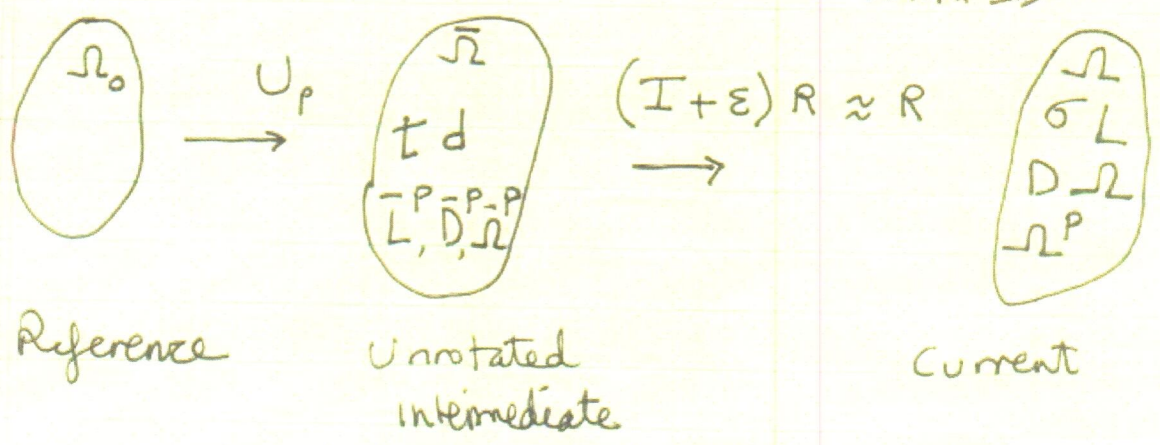 Ω₀
U_p
Ω̄
t d
L̄ᵖ, D̄ᵖ, Ω̄ᵖ
(I + ε) R ≈ R
Ω
σ L
D Ω
Ωᵖ
Reference
Unrotated
intermediate
Current